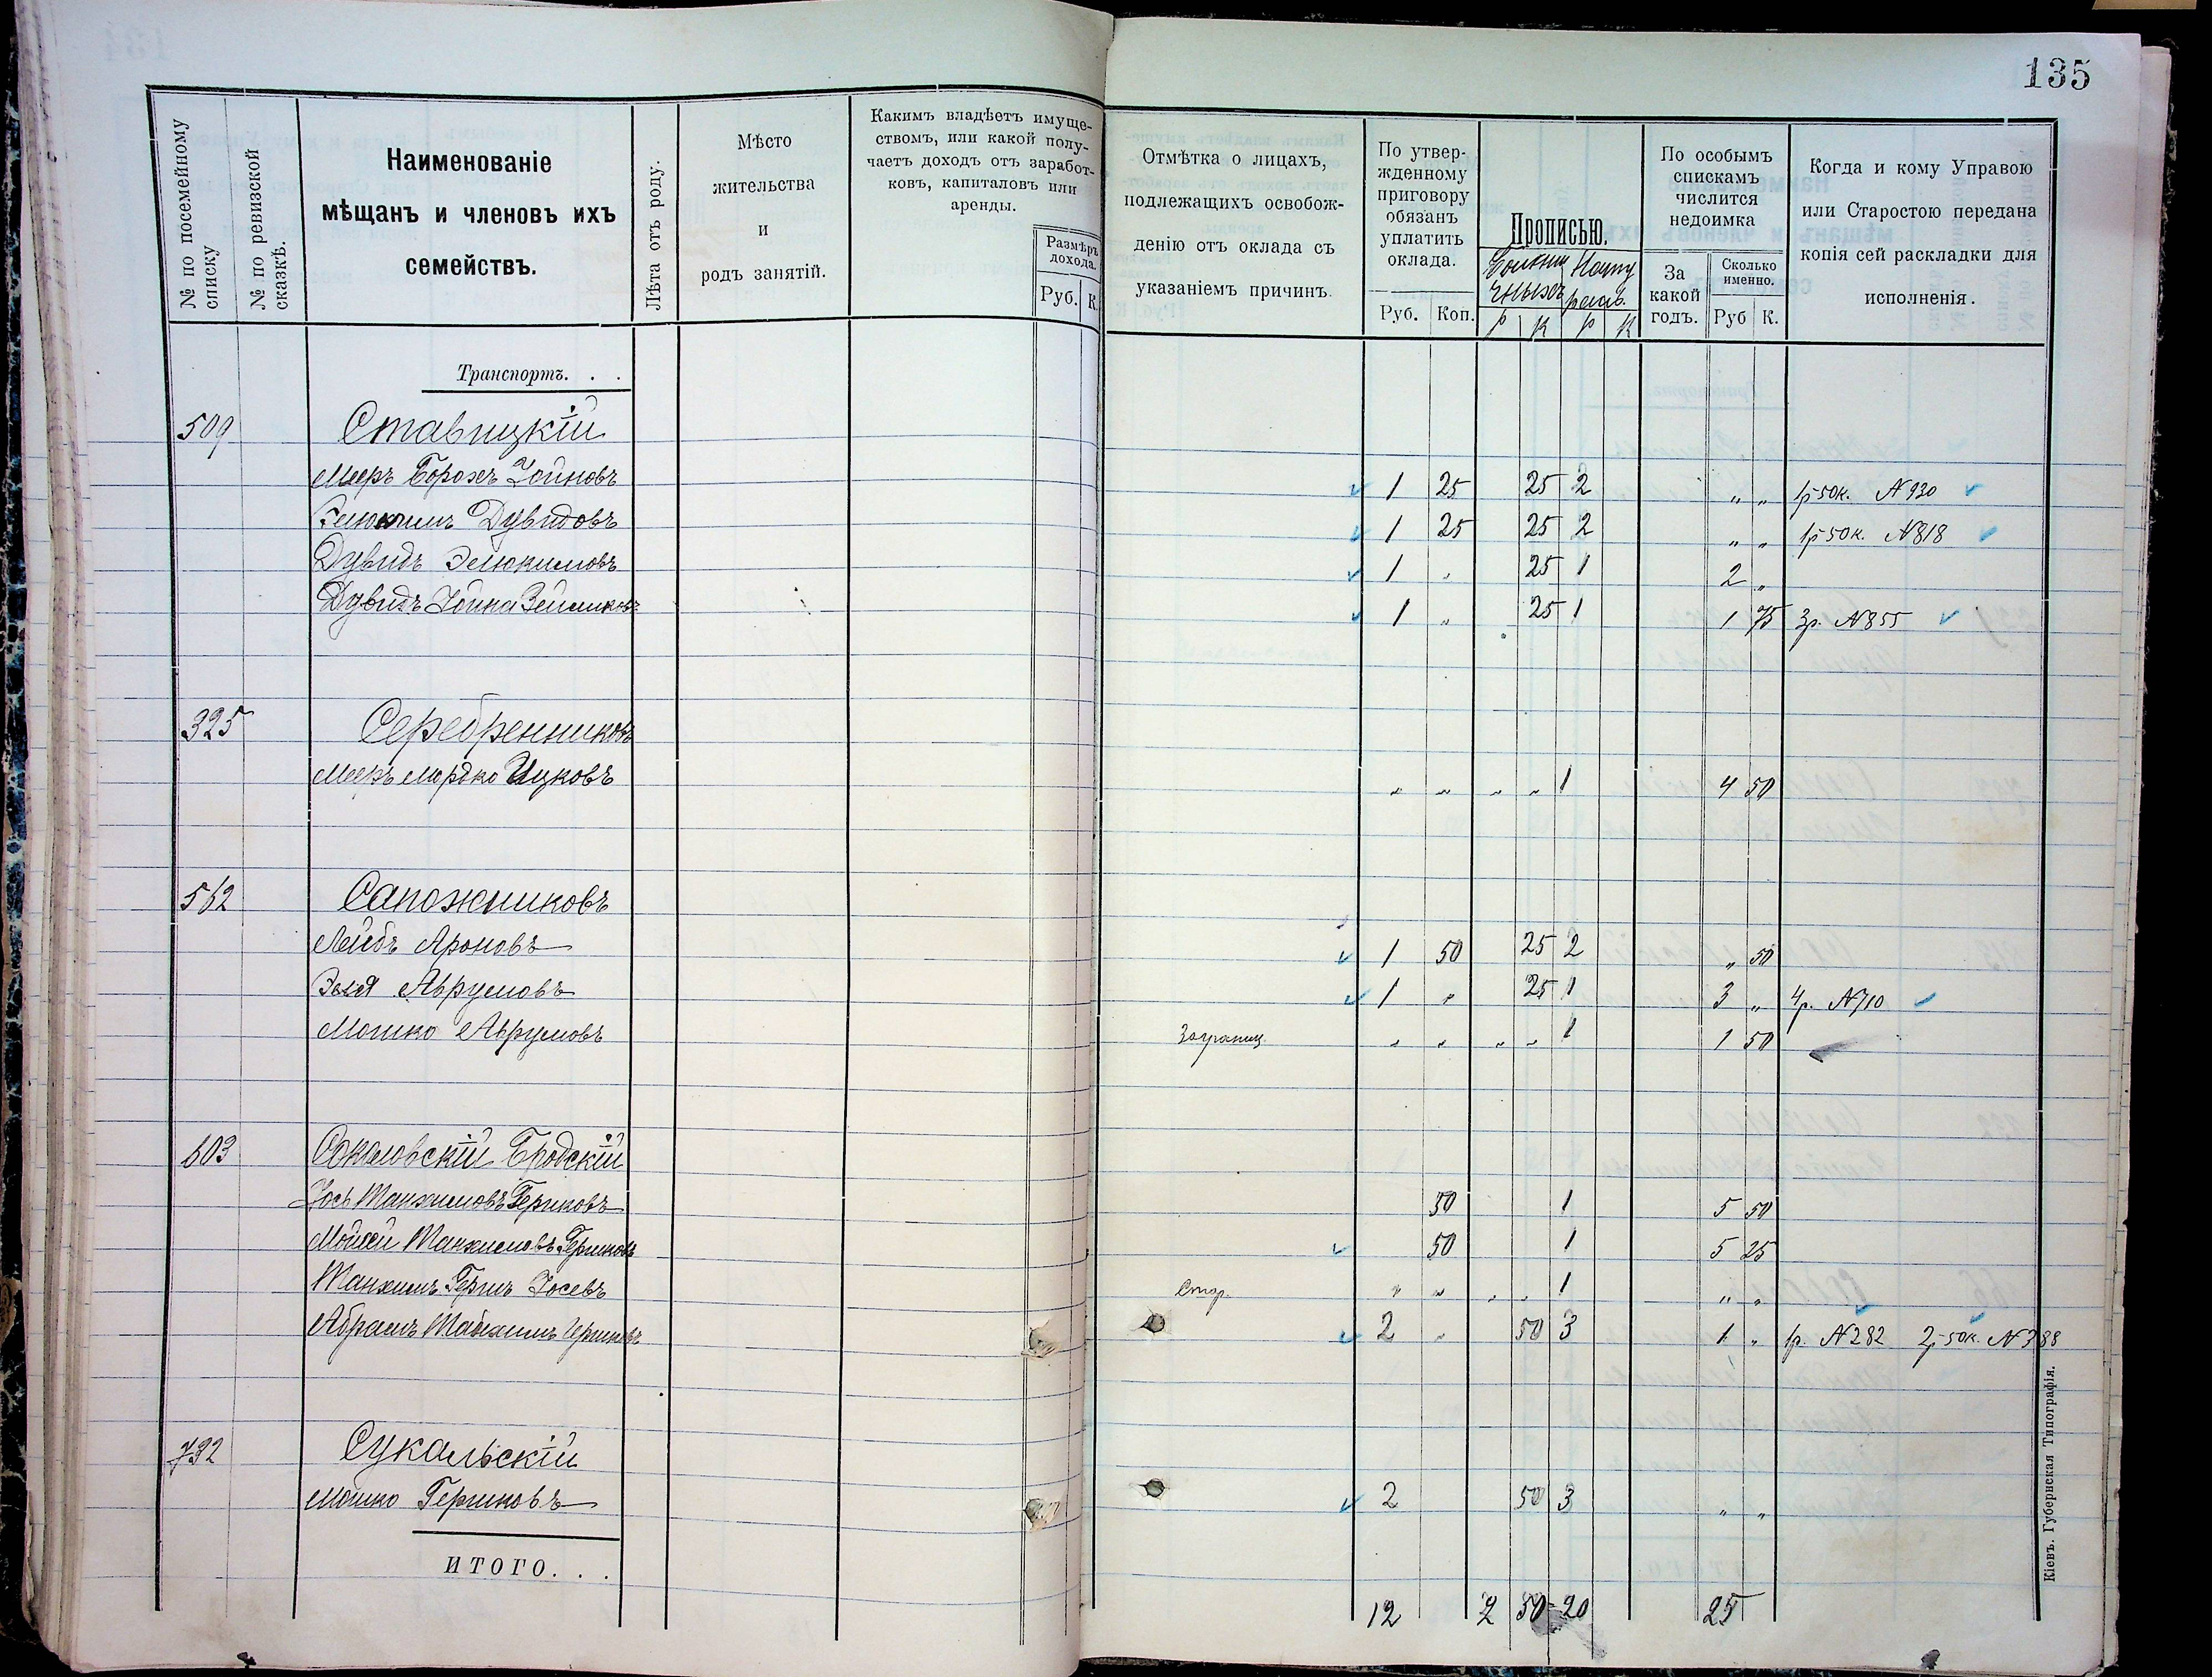 135
№ по посемейному списку
№ по ревизской сказкѣ.
Наименованіе
мѣщанъ и членовъ ихъ
семействъ.
Лѣта отъ роду.
Мѣсто
жительства
и
родъ занятій.
Какимъ владѣетъ имуще-
ствомъ, или какой полу-
чаетъ доходъ отъ заработ-
ковъ, капиталовъ или
аренды.
Размѣръ
дохода.
Руб. К.
Отмѣтка о лицахъ,
подлежащихъ освобож-
денію отъ оклада съ
указаніемъ причинъ.
По утвер-
жденному
приговору
обязанъ
уплатить
оклада.
Руб. Коп.
Прописью.
р к р к
По особымъ
спискамъ
числится
недоимка
За
какой
годъ.
Сколько
именно.
Руб К.
Когда и кому Управою
или Старостою передана
копія сей раскладки для
исполненія.
Транспортъ. . .
509 Ставицкій
Меръ Борохъ Іойновъ 1 25 25 2 " " 1р 50к. N 930
Элюкимъ Дувидовъ 1 25 25 2 " " 1р 50к. N 818
Дувидъ Элюкимовъ 1 " 25 1 2 "
Дувидъ Іойна 1 " 25 1 1 75 3р. N 855
325 Серебренниковъ
Меръ Мордко Ицковъ " " " " 1 4 50
562 Сапожниковъ
Лейбъ Ароновъ 1 50 25 2 " 50
Эля Аврумовъ 1 " 25 1 3 " 4р. N 710
Мошко Аврумовъ Заграниц. " " " " 1 1 50
603 Соколовскій Бродскій
Іось Манхимовъ Гершковъ 50 1 5 50
Мойсей Манхимовъ Гершковъ 50 1 5 25
Манхимъ Гершъ Іосевъ Стар. " " " " 1 " "
Абрамъ 2 " 50 3 1 " 1р. N 282 2р 50к. N 388
732 Сукальскій
Мошко Гершковъ 2 50 3 " "
ИТОГО. . .
12 2 50 20 25
Кіевъ. Губернская Типографія.